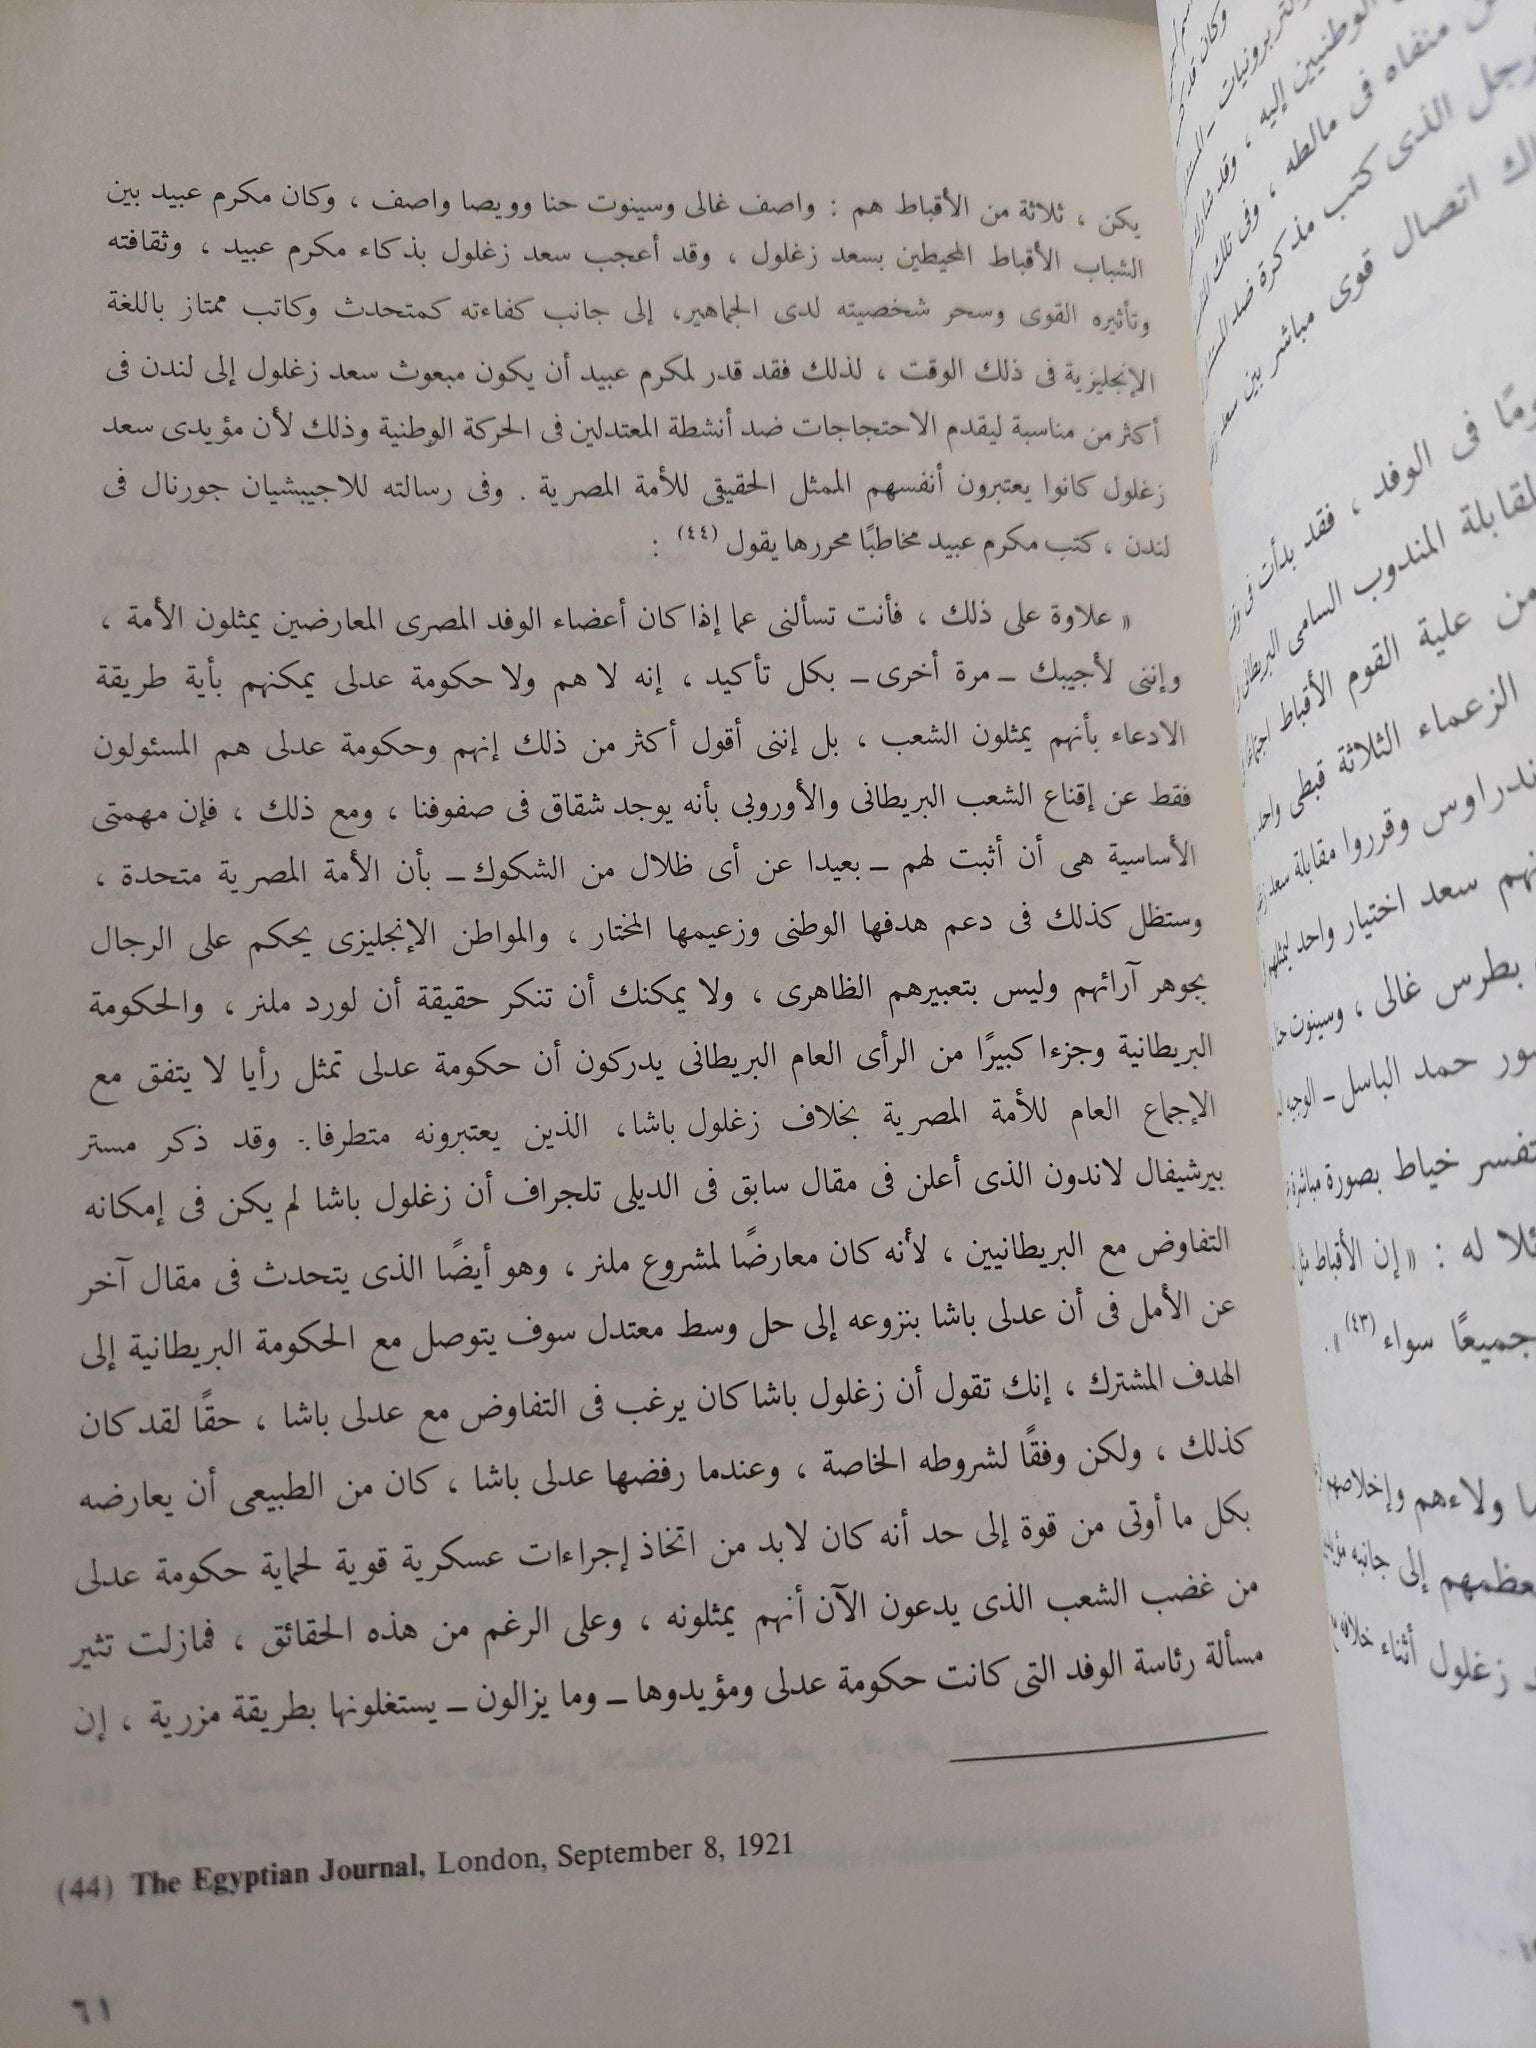 يكن ، ثلاثة من الأقباط هم : واصف غالى وسينوت حنا وويصا واصف ، وكان مكرم عبيد بين
الشباب الأقباط المحيطين بسعد زغلول ، وقد أعجب سعد زغلول بذكاء مكرم عبيد ، وثقافته
وتأثيره القوى وسحر شخصيته لدى الجماهير، إلى جانب كفاءته كمتحدث وكاتب ممتاز باللغة
الإنجليزية فى ذلك الوقت ، لذلك فقد قدر لمكرم عبيد أن يكون مبعوث سعد زغلول إلى لندن فى
أكثر من مناسبة ليقدم الاحتجاجات ضد أنشطة المعتدلين فى الحركة الوطنية وذلك لأن مؤيدى سعد
زغلول كانوا يعتبرون أنفسهم الممثل الحقيقى للأمة المصرية . وفى رسالته للاجيبشيان جورنال فى
لندن ، كتب مكرم عبيد مخاطبًا محررها يقول (٤٤) :
« علاوة على ذلك ، فأنت تسألنى عما إذا كان أعضاء الوفد المصرى المعارضين يمثلون الأمة ،
وإننى لأجيبك ــ مرة أخرى ــ بكل تأكيد ، إنه لا هم ولا حكومة عدلى يمكنهم بأية طريقة
الادعاء بأنهم يمثلون الشعب ، بل إننى أقول أكثر من ذلك إنهم وحكومة عدلى هم المسئولون
فقط عن إقناع الشعب البريطانى والأوروبى بأنه يوجد شقاق فى صفوفنا ، ومع ذلك ، فإن مهمتى
الأساسية هى أن أثبت لهم ــ بعيدا عن أى ظلال من الشكوك ــ بأن الأمة المصرية متحدة ،
وستظل كذلك فى دعم هدفها الوطنى وزعيمها المختار ، والمواطن الإنجليزى يحكم على الرجال
بجوهر آرائهم وليس بتعبيرهم الظاهرى ، ولا يمكنك أن تنكر حقيقة أن لورد ملنر ، والحكومة
البريطانية وجزءا كبيرًا من الرأى العام البريطانى يدركون أن حكومة عدلى تمثل رأيا لا يتفق مع
الإجماع العام للأمة المصرية بخلاف زغلول باشا، الذين يعتبرونه متطرفا. وقد ذكر مستر
بيرشيفال لاندون الذى أعلن فى مقال سابق فى الديلى تلجراف أن زغلول باشا لم يكن فى إمكانه
التفاوض مع البريطانيين ، لأنه كان معارضًا لمشروع ملنر ، وهو أيضًا الذى يتحدث فى مقال آخر
عن الأمل فى أن عدلى باشا بنزوعه إلى حل وسط معتدل سوف يتوصل مع الحكومة البريطانية إلى
الهدف المشترك ، إنك تقول أن زغلول باشا كان يرغب فى التفاوض مع عدلى باشا ، حقًا لقد كان
كذلك ، ولكن وفقًا لشروطه الخاصة ، وعندما رفضها عدلى باشا ، كان من الطبيعى أن يعارضه
بكل ما أوتى من قوة إلى حد أنه كان لابد من اتخاذ إجراءات عسكرية قوية لحماية حكومة عدلى
من غضب الشعب الذى يدعون الآن أنهم يمثلونه ، وعلى الرغم من هذه الحقائق ، فمازلت تثير
مسألة رئاسة الوفد التى كانت حكومة عدلى ومؤيدوها ــ وما يزالون ــ يستغلونها بطريقة مزرية ، إن
(44) The Egyptian Journal, London, September 8, 1921
٦١
الوطنيين إليه ، وقد
منفاه فى مالطه ، وفى تلك
الذى كتب مذكرة ضد
اتصال قوى مباشر بين سعد
فى الوفد ، فقد بدأت فى
المندوب السامى البريطانى
من علية القوم الأقباط
الزعماء الثلاثة قبطى واحد
وقرروا مقابلة سعد
سعد اختيار واحد ليمثلهم
بطرس غالى ، وسينوت حنا
حمد الباسل ــ الوجيه
خياط بصورة مباشرة
له : « إن الأقباط مثل
جميعًا سواء (٤٣) » .
ولاءهم وإخلاصهم
إلى جانبه
زغلول أثناء